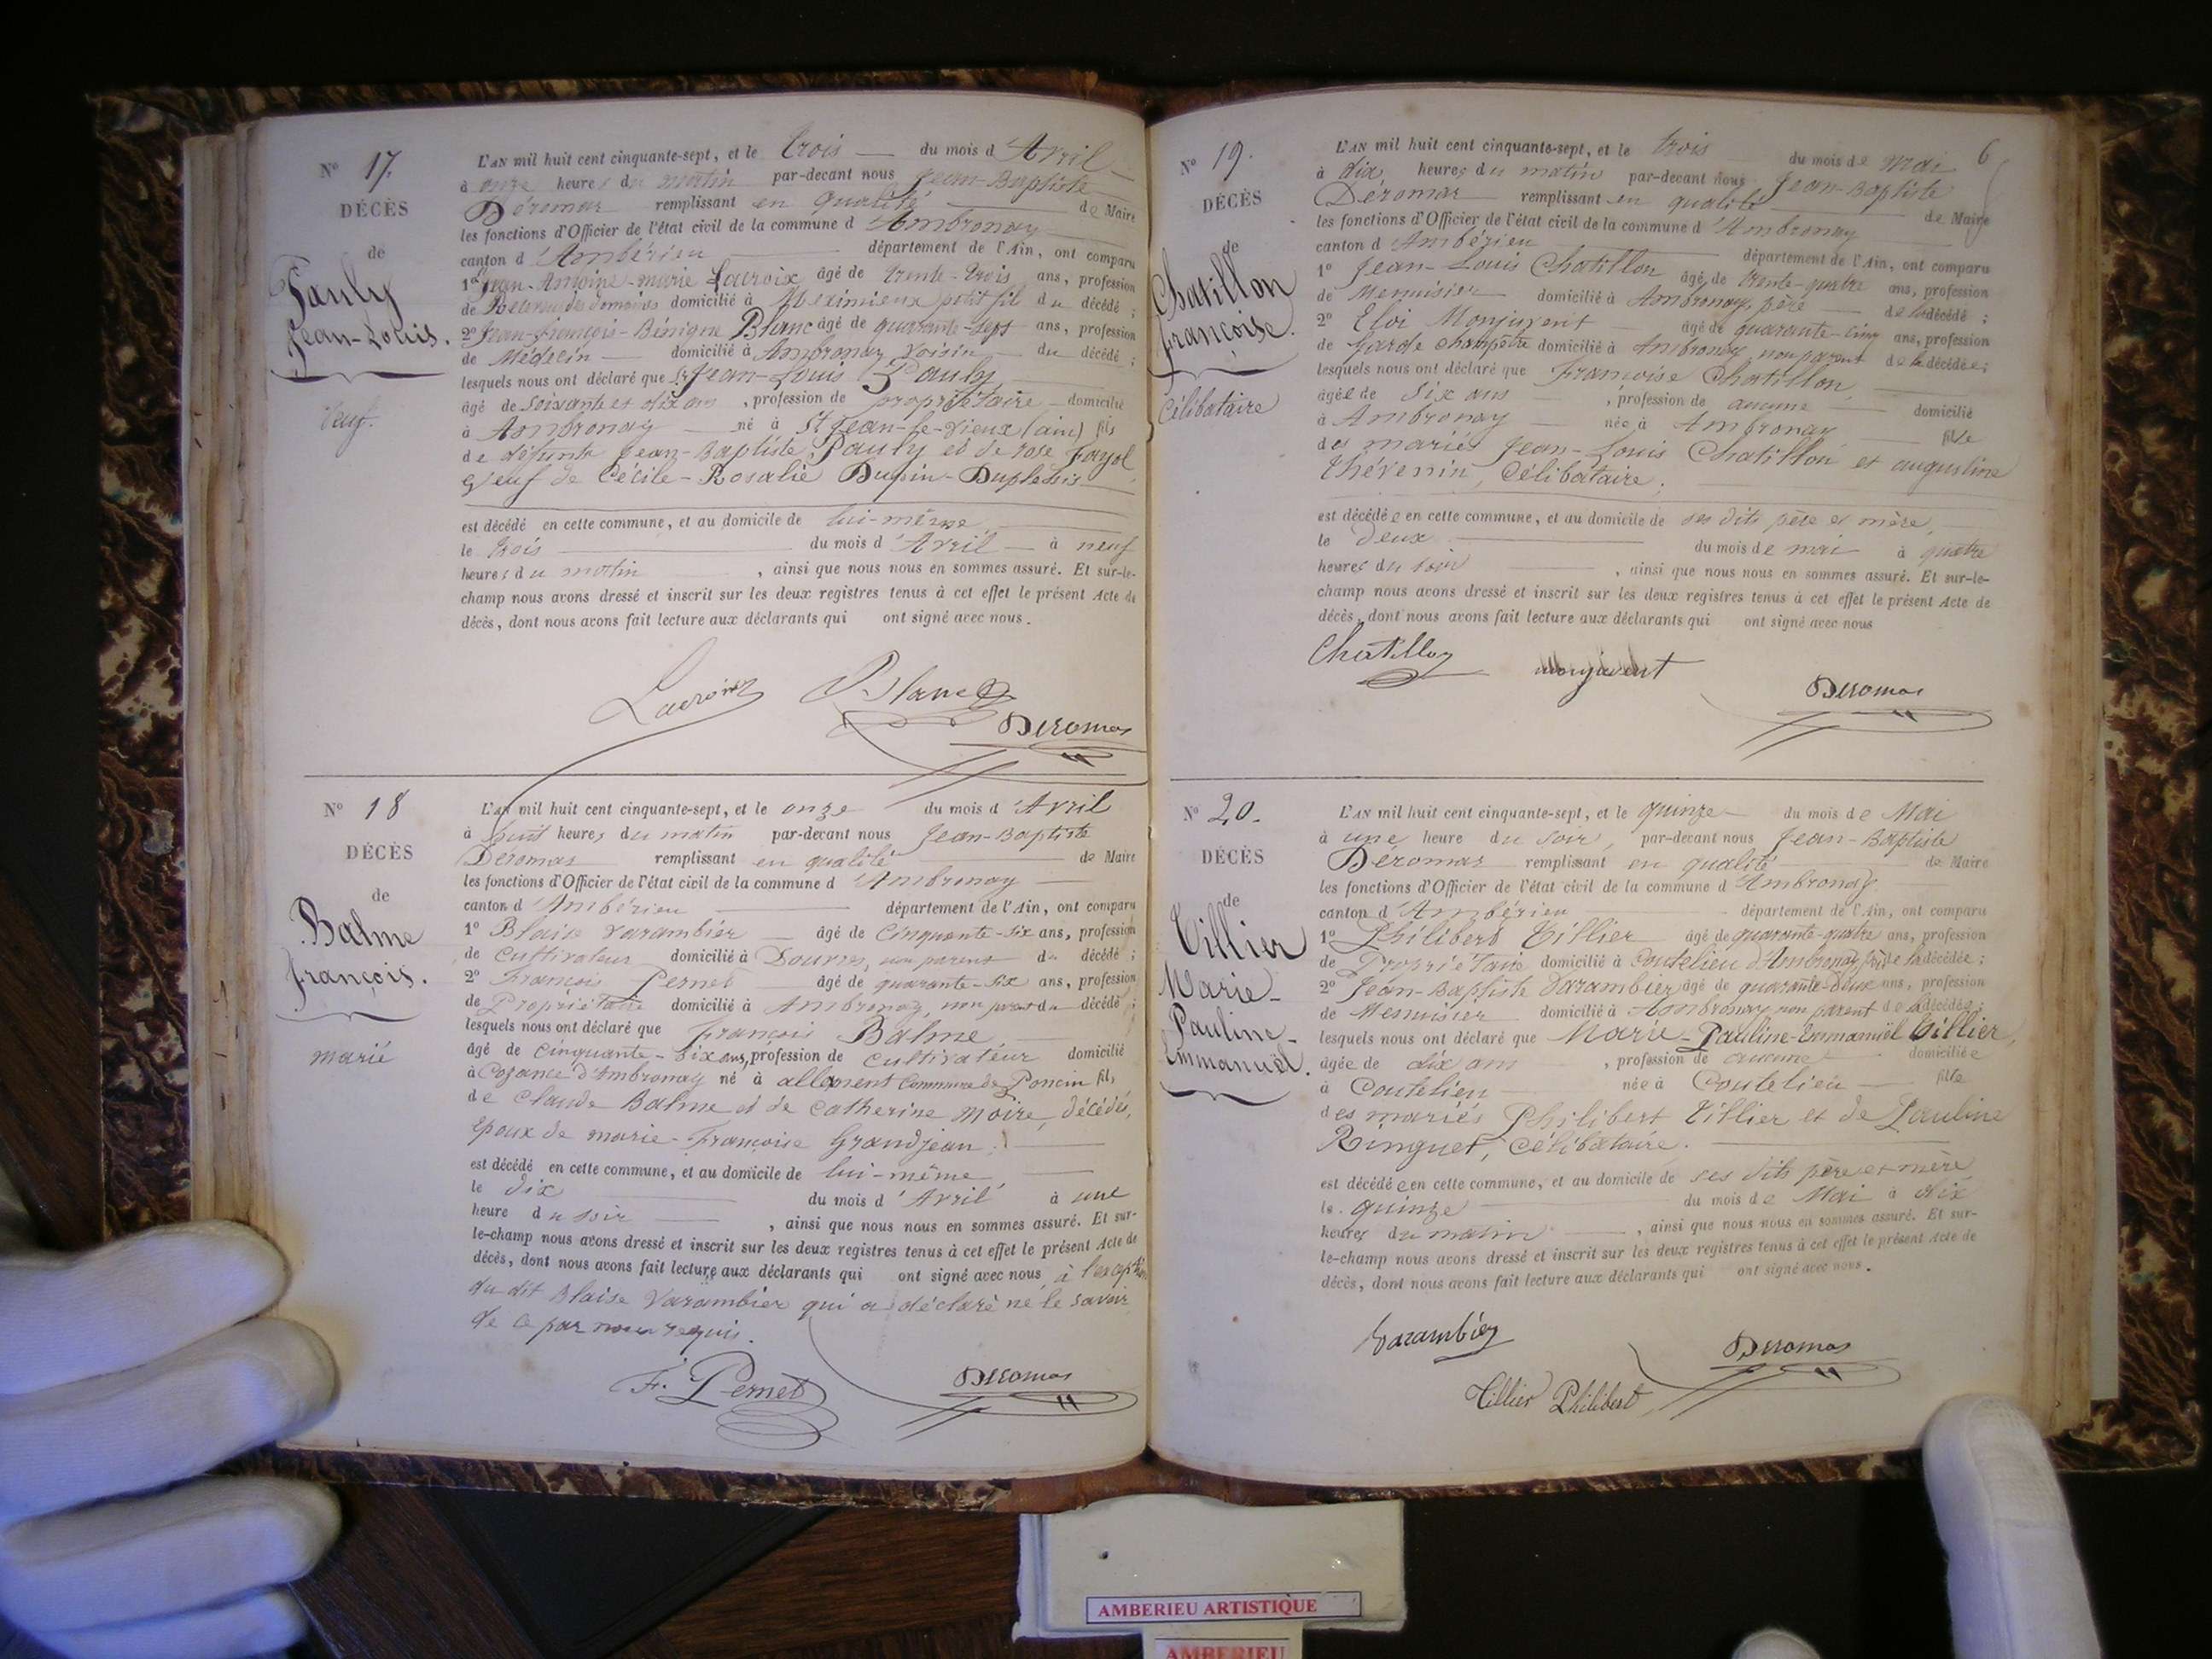 N° 17.
DÉCÈS
de
Pauly
Jean-Louis.
Veuf.
L'AN mil huit cent cinquante-sept, et le trois du mois d'Avril
à onze heures du matin par-devant nous Jean-Baptiste
Déromas remplissant en qualité de Maire
les fonctions d'Officier de l'état civil de la commune d'Ambronay
canton d'Ambérieu département de l'Ain, ont comparu
1° Jean-Antoine-marie Lacroix âgé de trente-trois ans, profession
de domaines domicilié à Meximieux petit fils du décédé ;
2° Jean-françois-Bénigne Blanc âgé de quarante-sept ans, profession
de Médecin domicilié à Ambronay voisin du décédé ;
lesquels nous ont déclaré que Jean-Louis Pauly,
âgé de soixante et dix ans, profession de propriétaire domicilié
à Ambronay né à St Jean-le-vieux (ain) fils
de défunts Jean-Baptiste Pauly et de rose Fayol
veuf de Cécile-Rosalie Dupin-Duplessis
est décédé en cette commune, et au domicile de lui-même,
le trois du mois d'Avril à neuf
heures du matin, ainsi que nous nous en sommes assuré. Et sur-le-
champ nous avons dressé et inscrit sur les deux registres tenus à cet effet le présent Acte de
décès, dont nous avons fait lecture aux déclarants qui ont signé avec nous.
Lacroix Blanc
Deromas
N° 18
DÉCÈS
de
Balme
françois.
marié
L'AN mil huit cent cinquante-sept, et le onze du mois d'Avril
à huit heures du matin par-devant nous Jean-Baptiste
Déromas remplissant en qualité de Maire
les fonctions d'Officier de l'état civil de la commune d'Ambronay
canton d'Ambérieu département de l'Ain, ont comparu
1° Blaise Varambier âgé de cinquante-six ans, profession
de cultivateur domicilié à Douvres, non parent du décédé ;
2° François Pernet âgé de quarante-six ans, profession
de Propriétaire domicilié à Ambronay, non parent du décédé ;
lesquels nous ont déclaré que François Balme
âgé de cinquante-six ans, profession de cultivateur domicilié
à Cozance d'Ambronay né à allement Commune de Poncin fils
de Claude Balme et de Catherine Moire, décédés,
époux de marie-Françoise Grandjean ;
est décédé en cette commune, et au domicile de lui-même,
le dix du mois d'Avril à une
heure du soir, ainsi que nous nous en sommes assuré. Et sur-
le-champ nous avons dressé et inscrit sur les deux registres tenus à cet effet le présent Acte de
décès, dont nous avons fait lecture aux déclarants qui ont signé avec nous, à l'exception
du dit Blaise Varambier qui a déclaré ne le savoir
de ce par nous requis.
F. Pernet Deromas
6
N° 19.
DÉCÈS
de
Chatillon
françoise.
Célibataire
L'AN mil huit cent cinquante-sept, et le trois du mois de mai
à dix heures du matin par-devant nous Jean-Baptiste
Déromas remplissant en qualité de Maire
les fonctions d'Officier de l'état civil de la commune d'Ambronay
canton d'Ambérieu département de l'Ain, ont comparu
1° Jean-Louis Chatillon âgé de trente-quatre ans, profession
de Menuisier domicilié à Ambronay, père de la décédé ;
2° Eloi Monjuvent âgé de quarante-cinq ans, profession
de garde champêtre domicilié à Ambronay, non parent de la décédée ;
lesquels nous ont déclaré que Françoise Chatillon,
âgée de six ans, profession de aucune domicilié
à Ambronay née à Ambronay fille
des mariés Jean-Louis Chatillon et augustine
Thévenin, Célibataire.
est décédée en cette commune, et au domicile de ses dits père et mère,
le deux du mois de mai à quatre
heures du soir, ainsi que nous nous en sommes assuré. Et sur-le-
champ nous avons dressé et inscrit sur les deux registres tenus à cet effet le présent Acte de
décès, dont nous avons fait lecture aux déclarants qui ont signé avec nous
Chatillon monjuvent Deromas
N° 20.
DÉCÈS
de
Tillier
Marie-
Pauline-
Emmanuël.
L'AN mil huit cent cinquante-sept, et le quinze du mois de Mai
à une heure du soir, par-devant nous Jean-Baptiste
Déromas remplissant en qualité de Maire
les fonctions d'Officier de l'état civil de la commune d'Ambronay
canton d'Ambérieu département de l'Ain, ont comparu
1° Philibert Tillier âgé de quarante-quatre ans, profession
de Propriétaire domicilié à Coutelieu d'Ambronay père de la décédée ;
2° Jean-Baptiste Varambier âgé de quarante-deux ans, profession
de Menuisier domicilié à Ambronay non parent de la décédée ;
lesquels nous ont déclaré que Marie-Pauline-Emmanuël Tillier,
âgée de dix ans, profession de aucune domiciliée
à Coutelieu née à Coutelieu fille
des mariés Philibert Tillier et de Pauline
Ringuet, célibataire.
est décédée en cette commune, et au domicile de ses dits père et mère
le quinze du mois de Mai à dix
heures du matin, ainsi que nous nous en sommes assuré. Et sur-
le-champ nous avons dressé et inscrit sur les deux registres tenus à cet effet le présent Acte de
décès, dont nous avons fait lecture aux déclarants qui ont signé avec nous.
Varambier Deromas
Tillier Philibert
AMBERIEU ARTISTIQUE
AMBERIEU